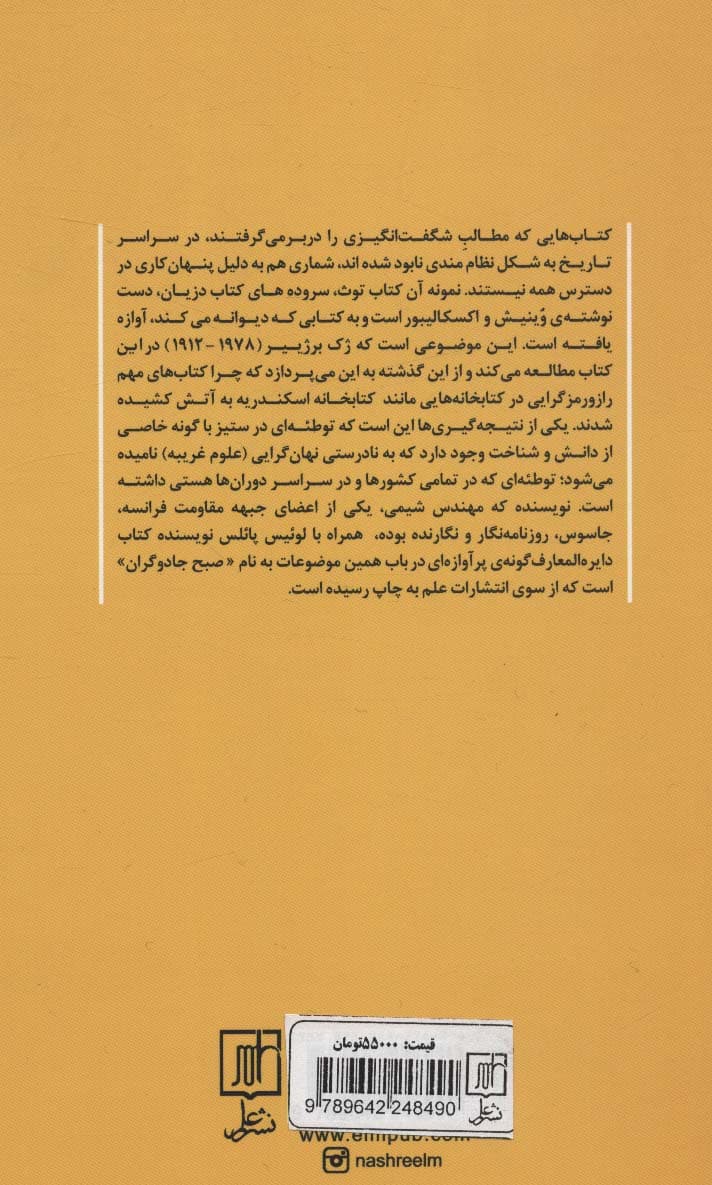 کتاب‌هایی که مطالبِ شگفت‌انگیزی را دربرمی‌گرفتند، در سراسر
تاریخ به شکل نظام مندی نابود شده اند، شماری هم به دلیل پنهان‌کاری در
دسترس همه نیستند. نمونه آن کتاب توث، سروده های کتاب دزیان، دست
نوشته‌ی وُینیش و اکسکالیبور است و به کتابی که دیوانه می کند، آوازه
یافته است. این موضوعی است که ژک برژییر (۱۹۷۸ - ۱۹۱۲) در این
کتاب مطالعه می‌کند و از این گذشته به این می‌پردازد که چرا کتاب‌های مهم
رازورمزگرایی در کتابخانه‌هایی مانند کتابخانه اسکندریه به آتش کشیده
شدند. یکی از نتیجه‌گیری‌ها این است که توطئه‌ای در ستیز با گونه خاصی
از دانش و شناخت وجود دارد که به نادرستی نهان‌گرایی (علوم غریبه) نامیده
می‌شود؛ توطئه‌ای که در تمامی کشورها و در سراسر دوران‌ها هستی داشته
است. نویسنده که مهندس شیمی، یکی از اعضای جبهه مقاومت فرانسه،
جاسوس، روزنامه‌نگار و نگارنده بوده، همراه با لوئیس پائلس نویسنده کتاب
دایره‌المعارف‌گونه‌ی پرآوازه‌ای در باب همین موضوعات به نام « صبح جادوگران»
است که از سوی انتشارات علم به چاپ رسیده است.
قیمت: ۵۵۰۰۰تومان
9 789642 248490
نشر علم
نشر علم
www.elmpub.com
nashreelm